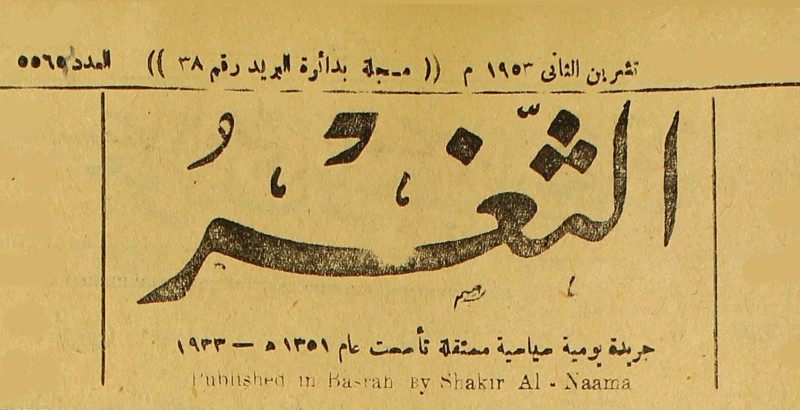 تشرين الثاني ١٩٥٣ م (( مسجلة بدائرة البريد رقم ٣٨ )) العدد ٥٥٦٥
الثَّغْرُ
جريدة يومية سياسية مستقلة تأسست عام ١٣٥١ ه — ١٩٣٣
Published in Basrah By Shakir Al - Naama